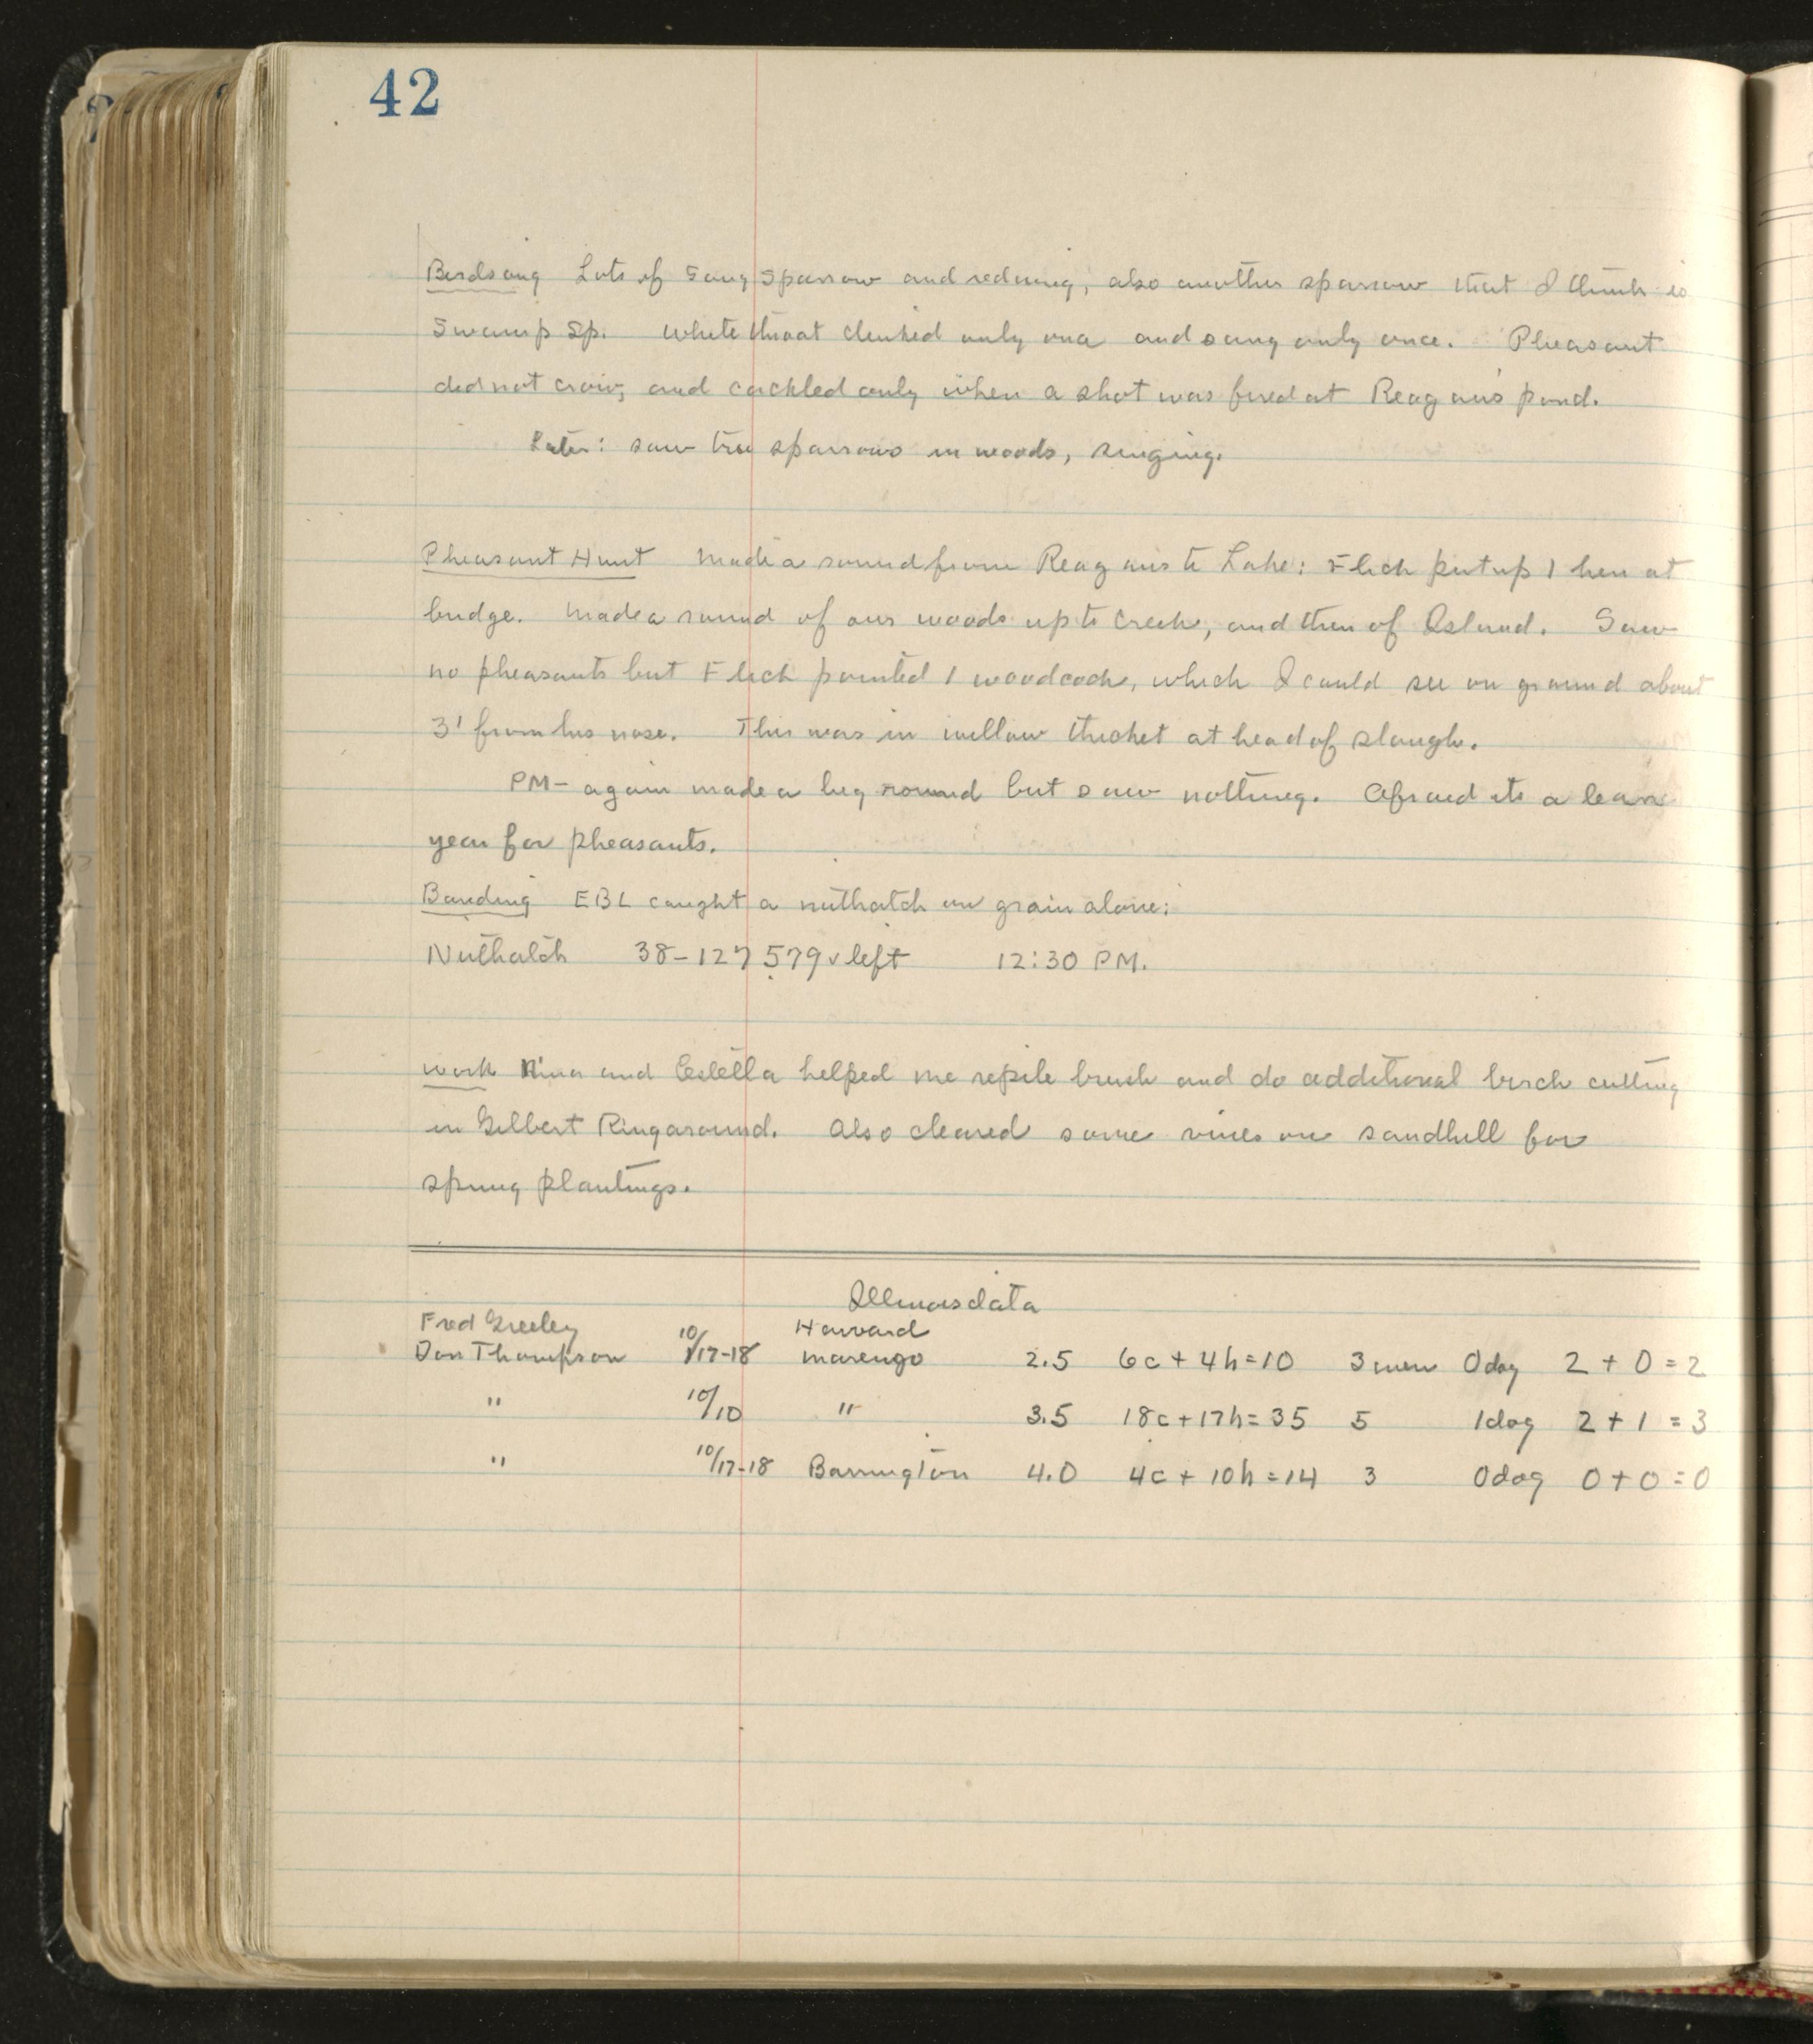 42
Birdsong Lots of Song Sparrow and redwing, also another sparrow that I think is
Swamp Sp. Whitethroat clenked only once and sang only once. Pheasant
did not crow, and cackled only when a shot was fired at Reagans pond.
Later: saw tree sparrows in woods, singing.
Pheasant Hunt Made a round from Reagans to Lake: Flick put up 1 hen at
bridge. Made a round of our woods up to Creek, and then of Island. Saw
no pheasants but Flick pointed 1 woodcock, which I could see on ground about
3' from his nose. This was in willow thicket at head of slough.
PM- again made a big round but saw nothing. Afraid its a lean
year for pheasants.
Banding EBL caught a nuthatch on grain alone:
Nuthatch 38-127579 v left 12:30 PM.
Work Nina and Estella helped me repile brush and do additional birch cutting
in Gilbert Ringaround. Also cleared some vines on sandhill for
spring plantings.
Illinois data
Fred Greeley Harvard
Don Thompson 10/17-18 Marengo 2.5 6c + 4h = 10 3 men 0 dog 2 + 0 = 2
" 10/10 " 3.5 18c + 17h = 35 5 1 dog 2 + 1 = 3
" 10/17-18 Barrington 4.0 4c + 10h = 14 3 0 dog 0 + 0 = 0